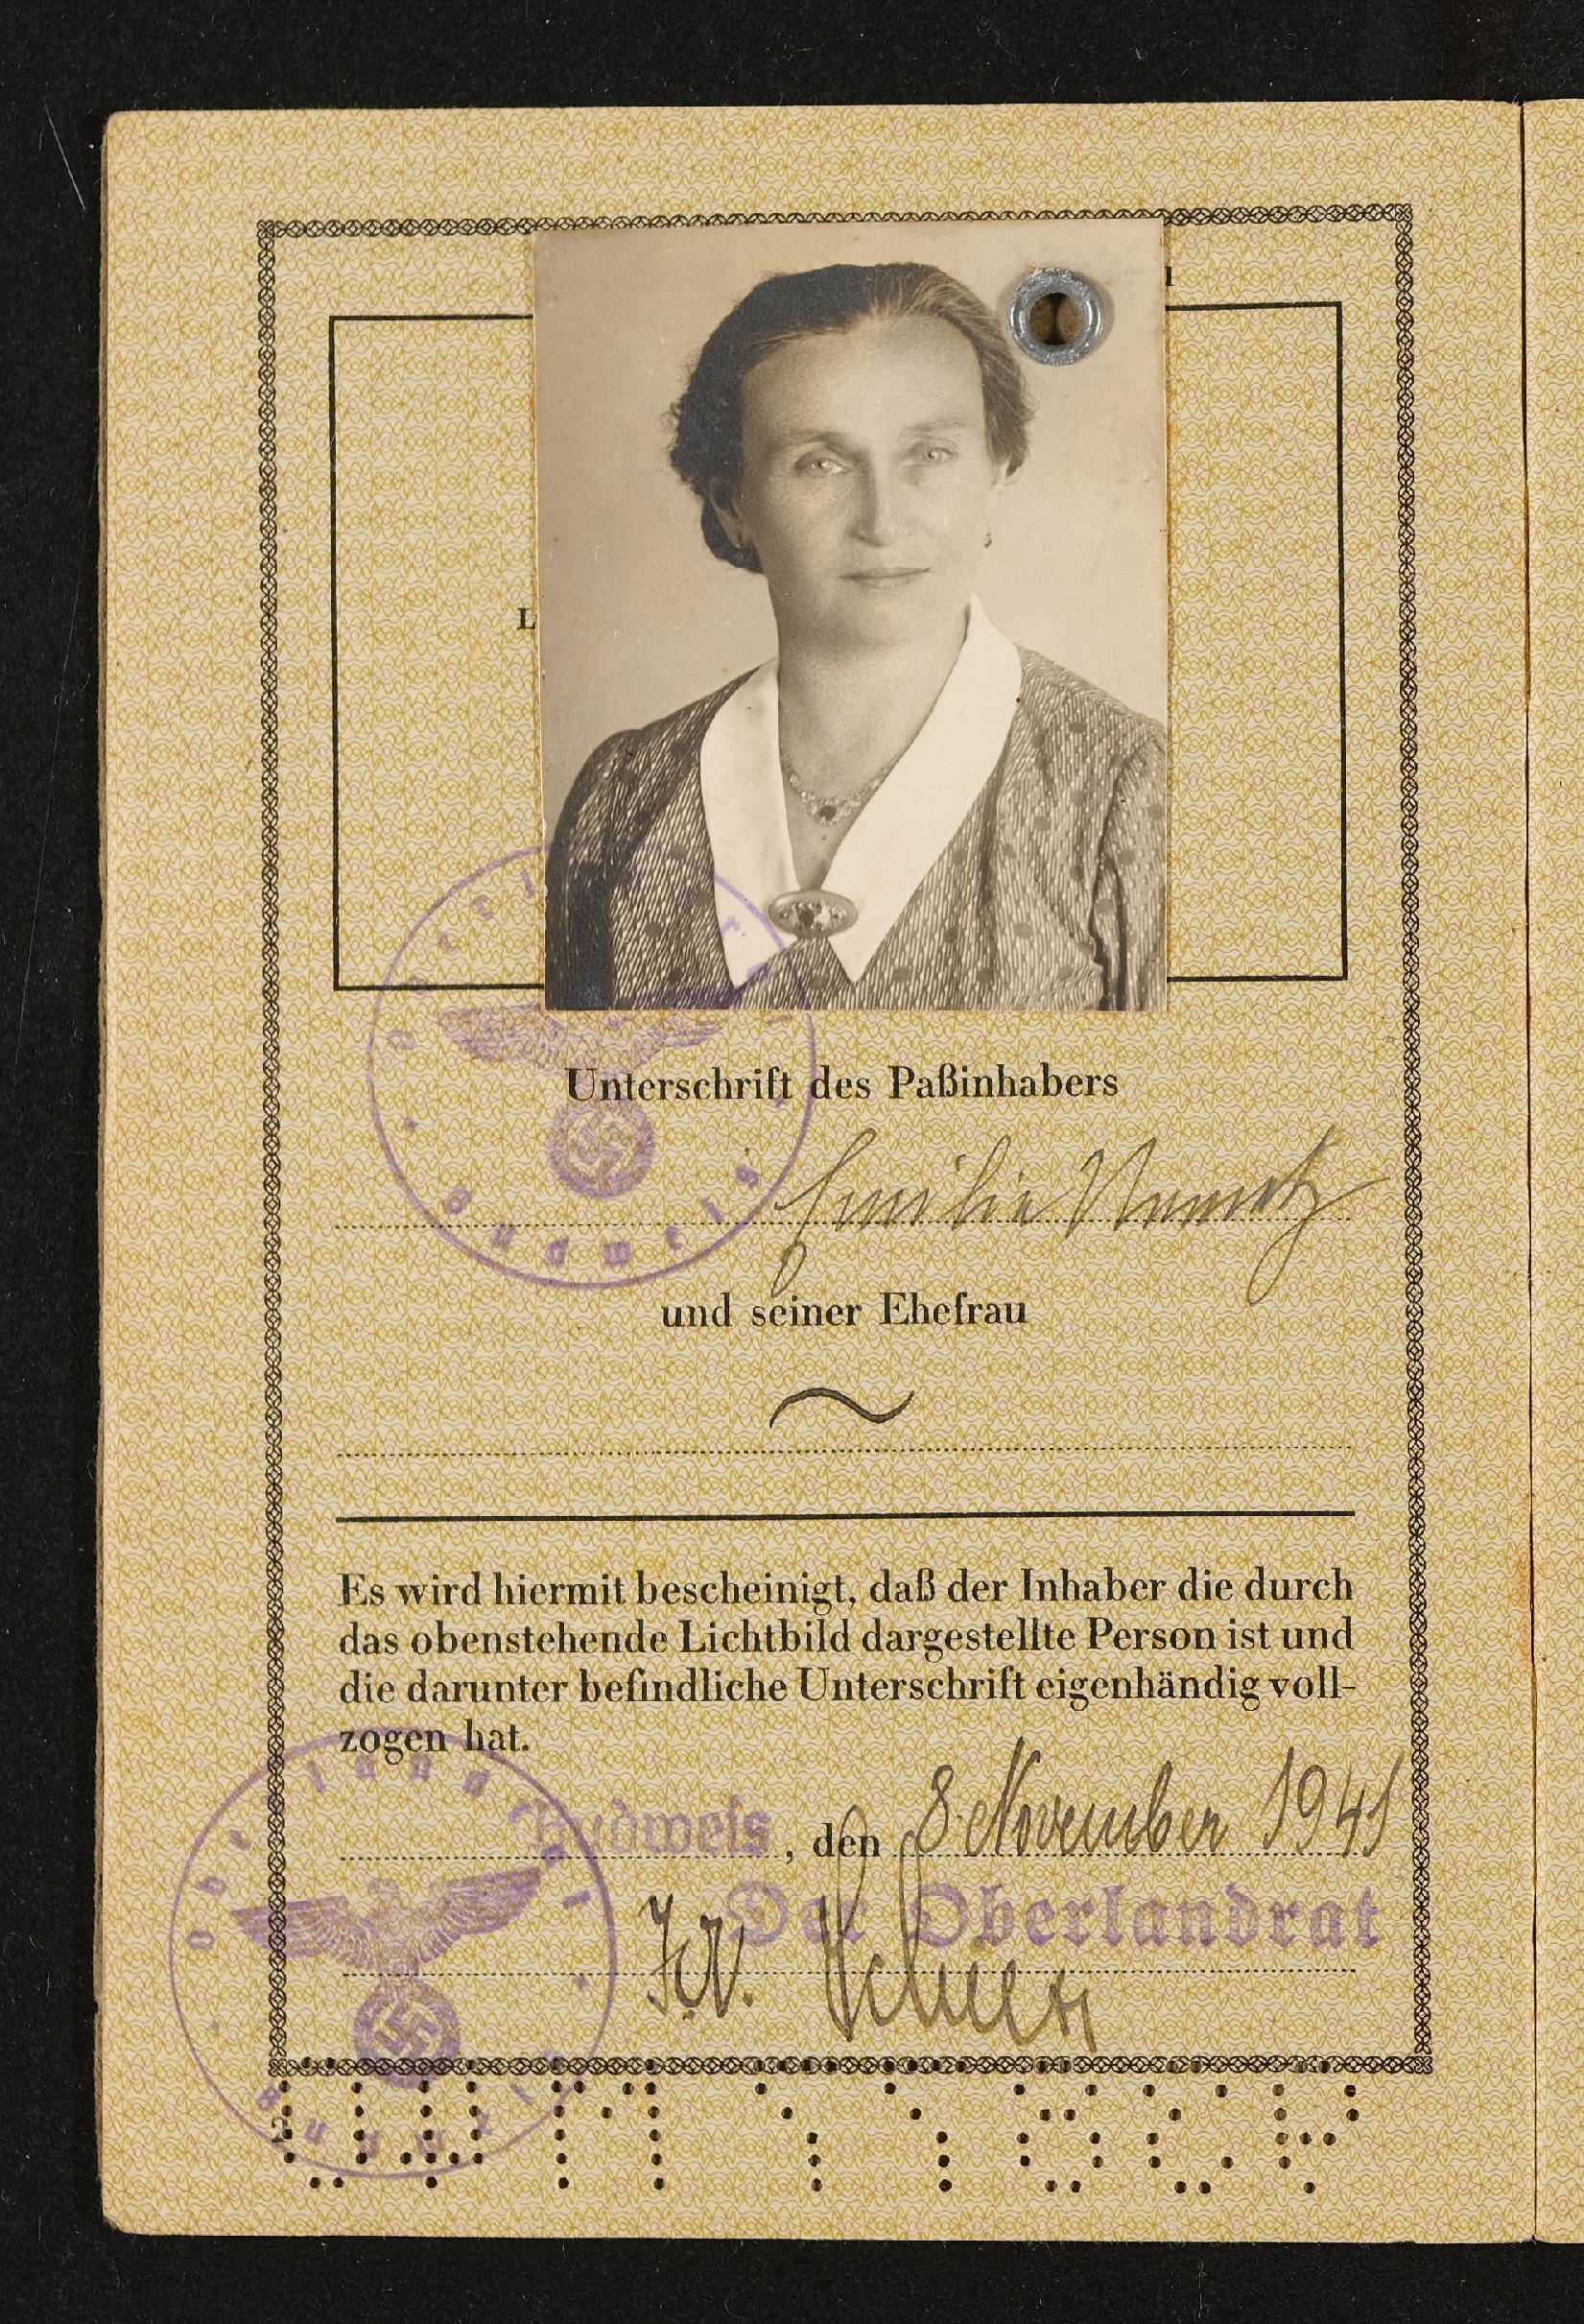 L
Unterschrift des Paßinhabers
Emilie Nemetz
und seiner Ehefrau
Es wird hiermit bescheinigt, daß der Inhaber die durch
das obenstehende Lichtbild dargestellte Person ist und
die darunter befindliche Unterschrift eigenhändig voll-
zogen hat.
Budweis, den 8. November 1941
Der Oberlandrat
Oberlandrat
Budweis
2